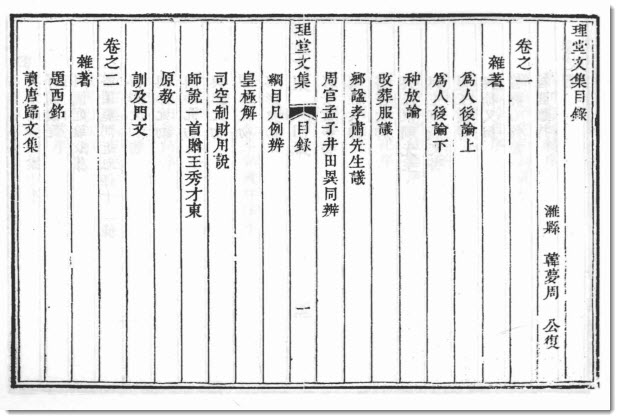 理堂文集目錄
濰縣 韓夢周 公復
卷之一
雜著
為人後論上
為人後論下
种放論
改葬服議
鄉諡孝肅先生議
周官孟子井田異同辨
理堂文集 目錄 一
綱目凡例辨
皇極解
司空制財用說
師說一首贈王秀才東
原教
訓及門文
卷之二
雜著
題西銘
讀唐歸文集